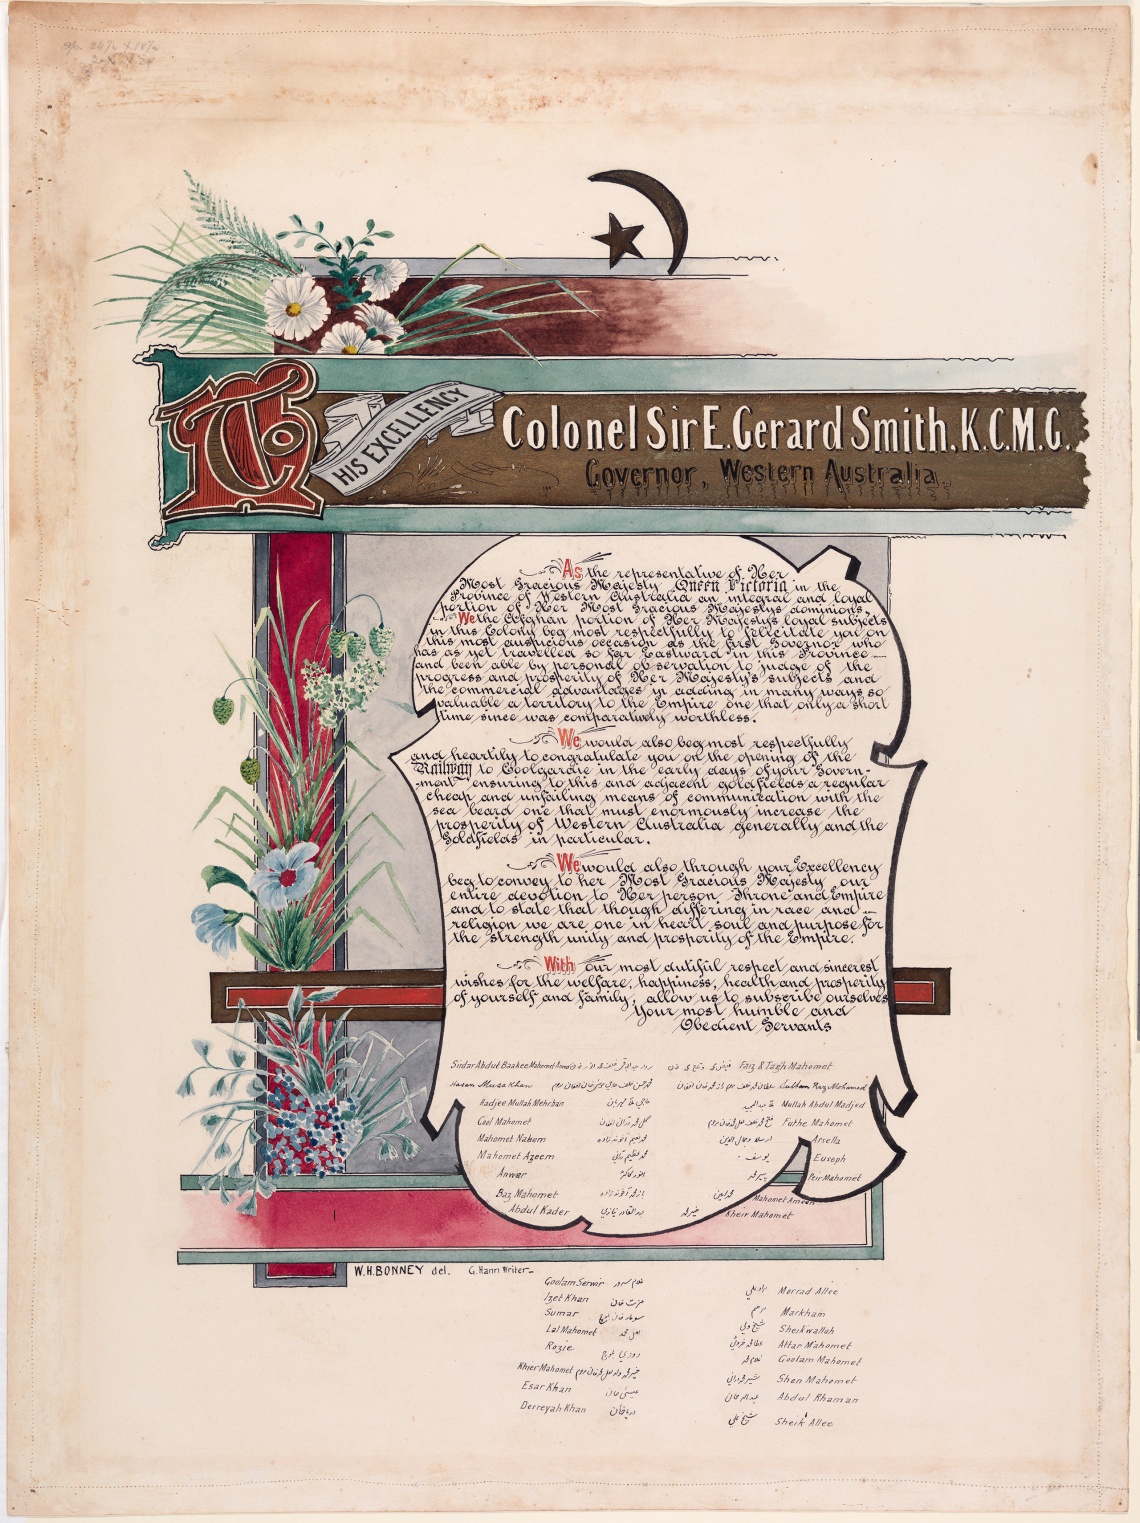 To
HIS EXCELLENCY
Colonel Sir E. Gerard Smith, K.C.M.G.
Governor, Western Australia.
As the representative of Her
Most Gracious Majesty Queen Victoria in the
Province of Western Australia an integral and loyal
portion of Her Most Gracious Majestys dominions.
We the Afghan portion of Her Majesty's loyal subjects
in this Colony beg most respectfully to felicitate you on
this most auspicious occasion as the first Governor who
has as yet travelled so far Eastward in this Province—
and been able by personal observation to judge of the
progress and prosperity of Her Majesty's subjects and
the commercial advantages in adding in many ways so
valuable a territory to the Empire one that only a short
time since was comparatively worthless.
We would also beg most respectfully
and heartily to congratulate you on the opening of the
Railway to Coolgardie in the early days of your Govern-
-ment ensuring to this and adjacent goldfields a regular
cheap and unfailing means of communication with the
sea board one that must enormously increase the
prosperity of Western Australia generally and the
Goldfields in particular.
We would also through your Excellency
beg to convey to her Most Gracious Majesty our
entire devotion to Her person Throne and Empire
and to state that though differing in race and —
religion we are one in heart, soul and purpose for
the strength unity and prosperity of the Empire.
With our most dutiful respect and sincerest
wishes for the welfare, happiness, health and prosperity
of yourself and family, allow us to subscribe ourselves
Your most humble and
Obedient Servants
Sirdar Abdul Baakee Mahomed Faiz & Tagh Mahomet
Hasan Musa Khan Sultan Raz Mohamed
Hadjee Mullah Mehrban Mullah Abdul Madjed
Gool Mahomet Futhe Mahomet
Mahomet Nahem Arsella
Mahomet Azeem Euseph یوسف
Anwar Peir Mahomet
Baz Mahomet Mahomet Ameen
Abdul Kader Kheir Mahomet
W.H. BONNEY del. G. Hann Writer
Goolam Serwir غلام سرور Morrad Allee
Izet Khan عزت خان Markham
Sumar Sheikwallah
Lal Mahomet لعل محمد Attar Mahomet
Rozie Goolam Mahomet غلام محمد
Khier Mahomet Shen Mahomet
Esar Khan Abdul Rhaman
Derreyah Khan دریا خان Sheik Allee شیخ علی